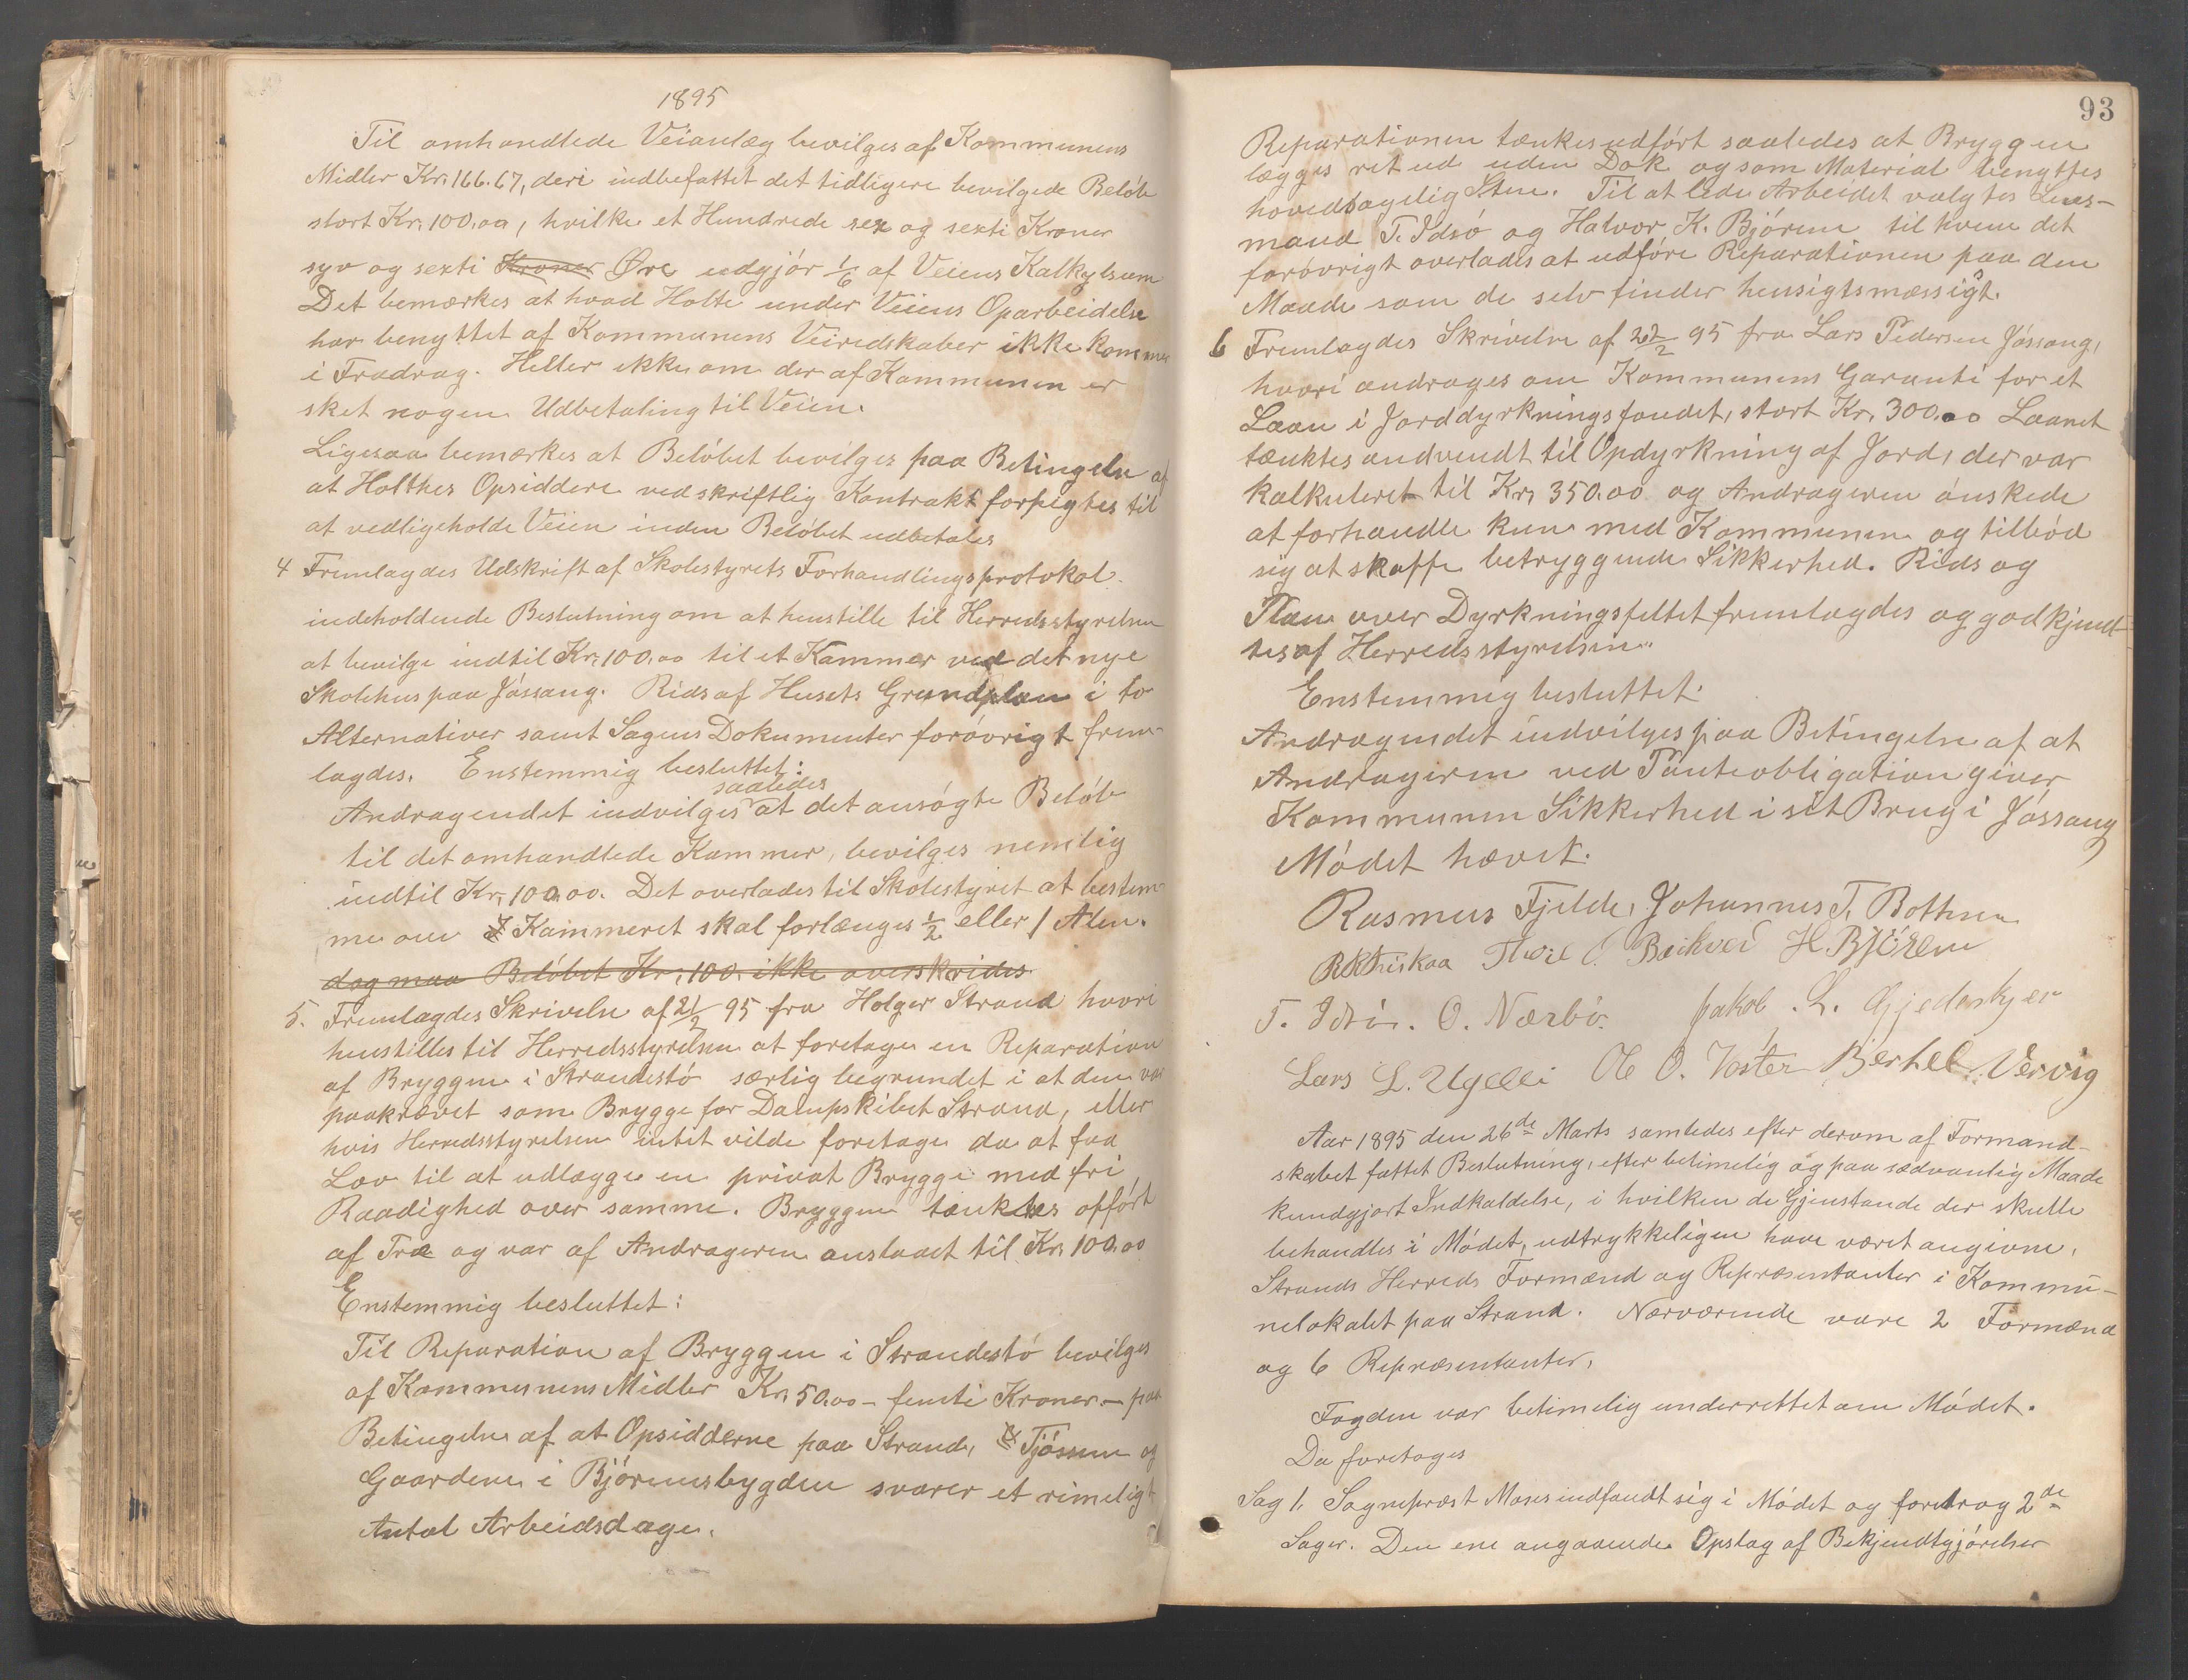 1895
Til omhandlede Veianlæg bevilges af Kommunens
Midler Kr. 166.67, deri indbefattet det tidligere bevilgede Beløb
stort Kr. 100.00, hvilke et Hundrede sex og sexti Kroner
syv og sexti Kroner Øre udgjør 1/6 af Veiens Kalkylsum
Det bemærkes at hvad Holte under Veiens Oparbeidelse
har benyttet af Kommunens Veiredskaber ikke kommer
i Fradrag. Heller ikke om der af Kommunen er
sket nogen Udbetaling til Veien.
Ligesaa bemærkes at Beløbet bevilges paa Betingelse af
at Holthes Opsiddere ved skriftlig Kontrakt forpigtes til
at vedligeholde Veien inden Beløbet udbetales
4 Fremlagdes Udskrift af Skolestyrets Forhandlingsprotokol
indeholdende Beslutning om at henstille til Herredsstyrelsen
at bevilge indtil Kr. 100.00 til et Kammer ved det nye
Skolehus paa Jøssang. Rids af Husets Grundplan i to
Alternativer samt Sagens Dokumenter forøvrigt frem-
lagdes. Enstemmig besluttet:
saaledes
Andragendet indvilges at det ansøgte Beløb
til det omhandlede Kammer, bevilges nemlig
indtil Kr. 100.00. Det overlades til Skolestyret at bestem-
me om Kammeret skal forlænges 1/2 eller 1 Alen.
dog maa Beløbet Kr. 100. ikke overskrides
5. Fremlagdes Skrivelse af 21/2 95 fra Holger Strand hvori
henstilles til Herredsstyrelsen at foretage en Reparation
af Bryggen i Strandestø særlig begrundet i at den var
paakrævet som Brygge for Dampskibet Strand, eller
hvis Herredsstyrelsen intet vilde foretage da at faa
Lov til at udlægge en privat Brygge med fri
Raadighed over samme. Bryggen tænktes opført
af Træ og var af Andrageren anslaaet til Kr. 100.00
Enstemmig besluttet:
Til Reparation af Bryggen i Strandestø bevilges
af Kommunens Midler Kr. 50.00 - femti Kroner - paa
Betingelse af at Opsidderne paa Strand, Tjøssem og
Gaardene i Bjørensbygden svarer et rimeligt
Antal Arbeidsdage.
93
Reparationen tænkes udført saaledes at Bryggen
lægges ret ud uden Dok og som Material benyttes
hovedsagelig Sten. Til at lede Arbeidet valgtes Lens-
mand T. Idsø og Halvor K. Bjøren til hvem det
forøvrigt overlades at udføre Reparationen paa den
Maade som de selv finder hensigtsmæssigt.
6 Fremlagdes Skrivelse af 22/2 95 fra Lars Pedersen Jøssang,
hvori andrages om Kommunens Garanti for et
Laan i Jorddyrkningsfondet, stort Kr. 300.00 Laanet
tænktes andvendt til Opdyrkning af Jord, der var
kalkuleret til Kr. 350.00 og Andrageren ønskede
at forhandle kun med Kommunen og tilbød
sig at skaffe betryggende Sikkerhed. Rids og
Plan over Dyrkningsfeltet fremlagdes og godkjend-
tes af Herredsstyrelsen.
Enstemmig besluttet:
Andragendet indvilges paa Betingelse af at
Andrageren ved Panteobligation giver
Kommunen Sikkerhed i sit Brug i Jøssang
Mødet hævet.
Rasmus Fjelde, Johannes T. Bothne
O. Barkved H. Bjøren
T. Idsø. O. Nærbø. Jakob L. Gjedrekjer
Lars L. Ugelli Ole O. Voster Berthel Vervig
Aar 1895 den 26de Marts samledes efter derom af Formand-
skabet fattet Beslutning, efter betimelig og paa sædvanlig Maade
kundgjort Indkaldelse, i hvilken de Gjenstande der skulle
behandles i Mødet, udtrykkeligen have været angivne,
Strands Herreds Formænd og Repræsentanter i Kommu-
nelokalet paa Strand. Nærværende vare 2 Formænd
og 6 Repræsentanter.
Fogden var betimelig underrettet om Mødet.
Da foretoges
Sag 1. Sogneprest Moses indfandt sig i Mødet og foredrog 2de
Sager. Den ene angaaende Opslag af Bekjendtgjørelser